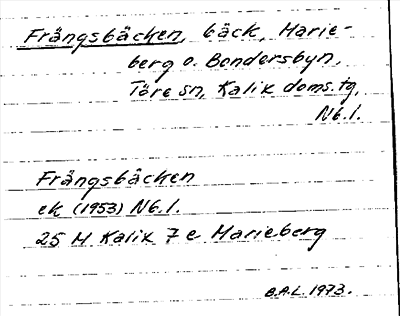 Frångsbäcken, bäck, Marie-
berg o. Bondersbyn,
Töre sn, Kalix doms.tg,
Nb.l.
Frångsbäcken
ek (1953) Nb.l.
25 M Kalix 7 e Marieberg
B.A.L. 1973.